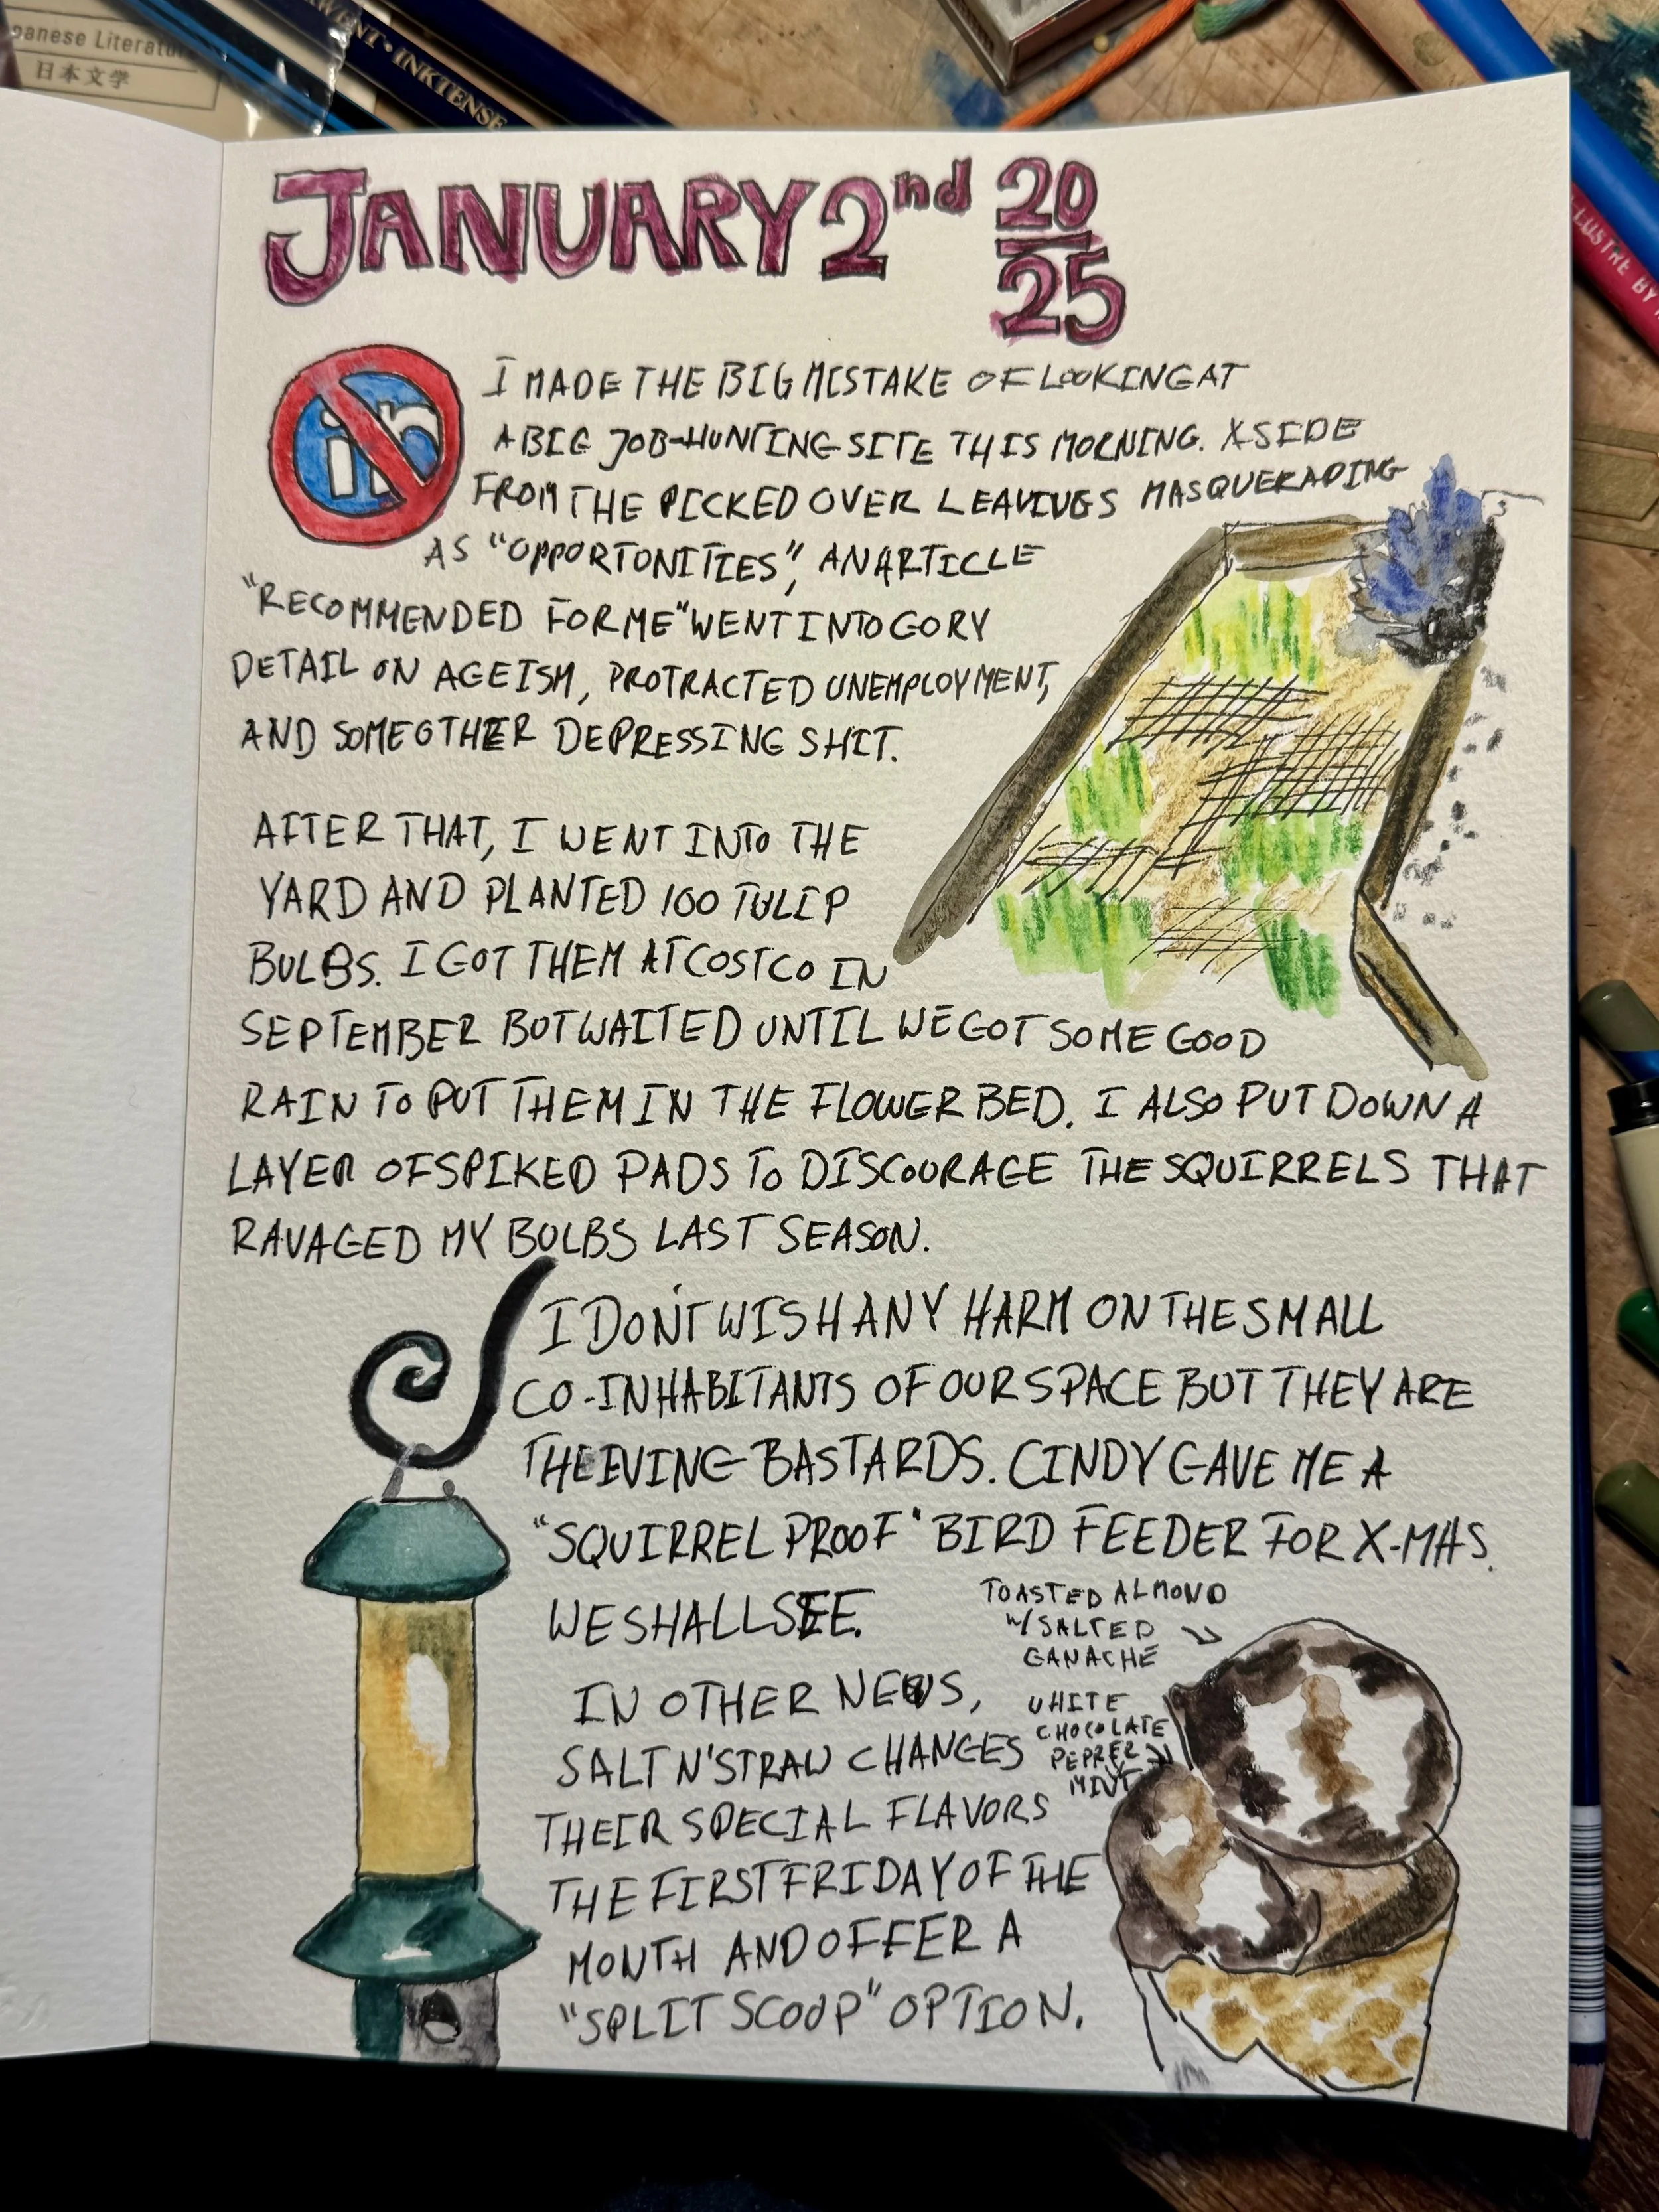 panese Literatu
日本文学
WENT • INKTENSE
LLUSTRE BY
JANUARY 2nd 20
25
in
I MADE THE BIG MISTAKE OF LOOKING AT
A BIG JOB-HUNTING SITE THIS MORNING. ASIDE
FROM THE PICKED OVER LEAVINGS MASQUERADING
AS "OPPORTONITIES", AN ARTICLE
"RECOMMENDED FOR ME" WENT INTO GORY
DETAIL ON AGEISM, PROTRACTED UNEMPLOYMENT,
AND SOME OTHER DEPRESSING SHIT.
AFTER THAT, I WENT INTO THE
YARD AND PLANTED 100 TULIP
BULBS. I GOT THEM AT COSTCO IN
SEPTEMBER BUT WAITED UNTIL WE GOT SOME GOOD
RAIN TO PUT THEM IN THE FLOWER BED. I ALSO PUT DOWN A
LAYER OF SPIKED PADS TO DISCOURAGE THE SQUIRRELS THAT
RAVAGED MY BULBS LAST SEASON.
I DON'T WISH ANY HARM ON THE SMALL
CO-INHABITANTS OF OUR SPACE BUT THEY ARE
THEIVING BASTARDS. CINDY GAVE ME A
"SQUIRREL PROOF" BIRD FEEDER FOR X-MAS.
WE SHALL SEE.
IN OTHER NEWS,
SALT N' STRAW CHANGES
THEIR SPECIAL FLAVORS
THE FIRST FRIDAY OF THE
MONTH AND OFFER A
"SPLIT SCOOP" OPTION.
TOASTED ALMOND
W/ SALTED
GANACHE
WHITE
CHOCOLATE
PEPPER
MINT